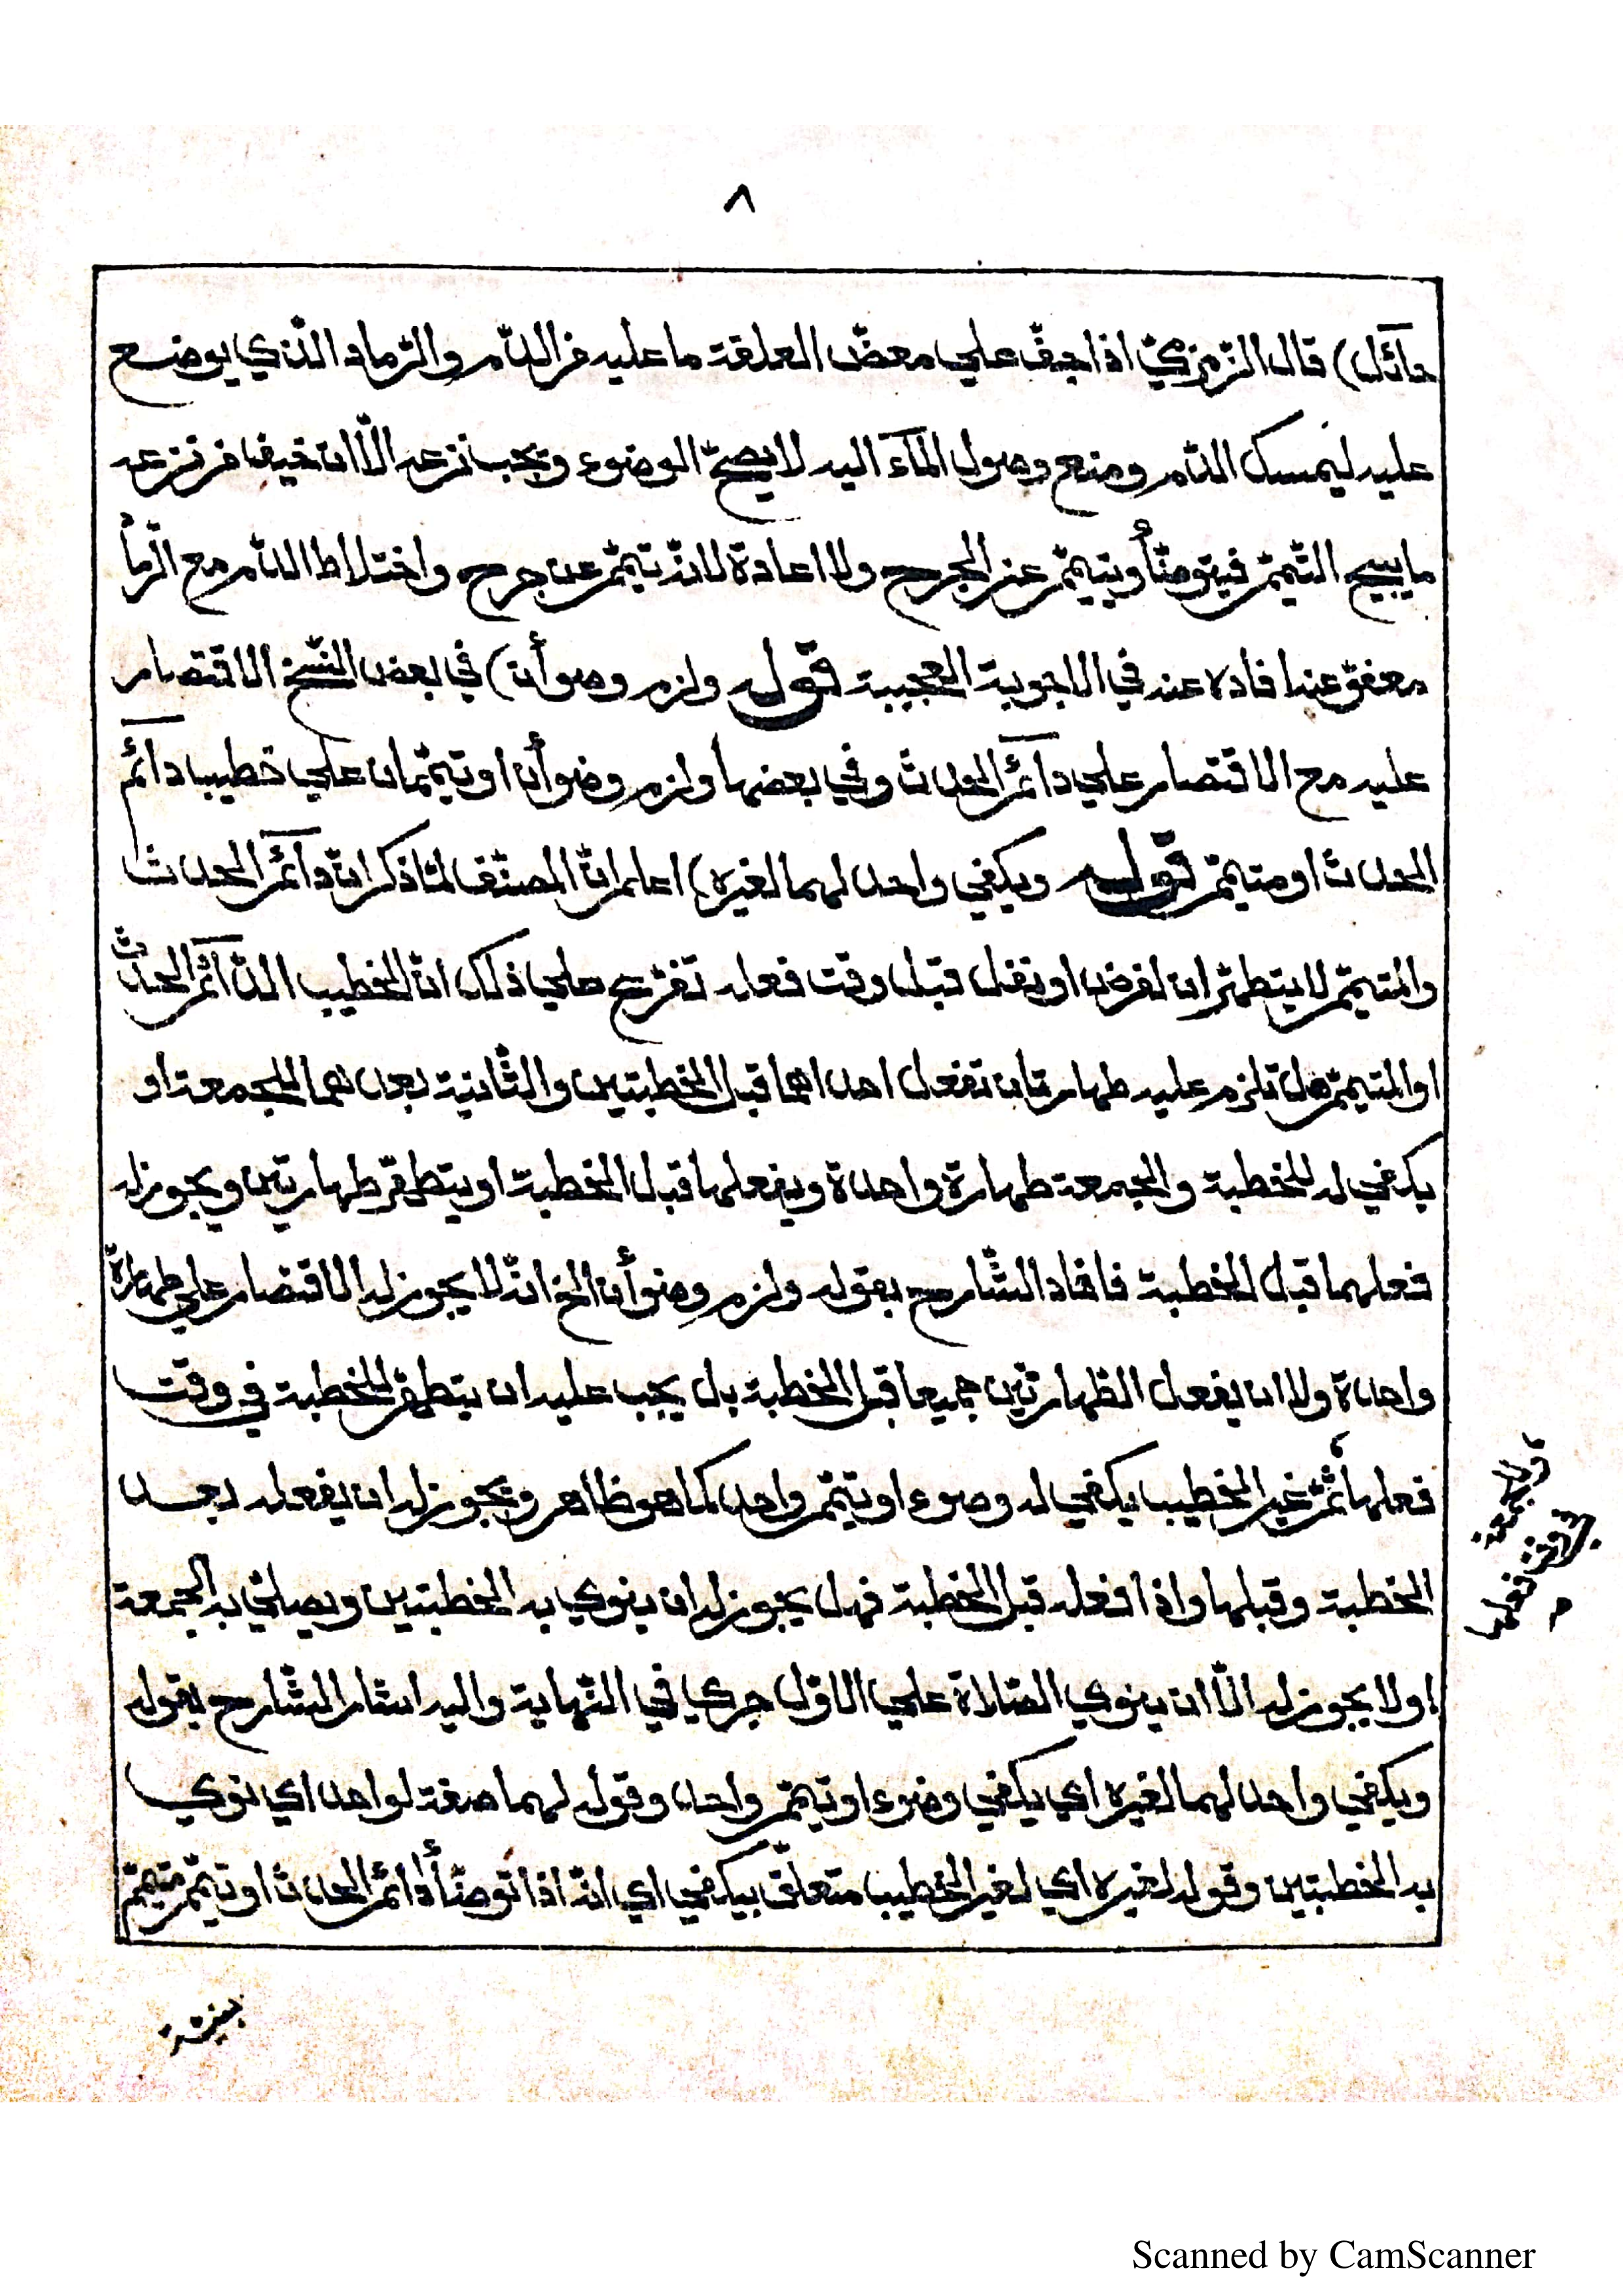 ٨
حائل) قال الزمزمي اذا جف علي معض العلقة ما عليه من الدّم والرّماد الّذي يوضع
عليه ليمسك الدّم ومنع وصول المآء اليه لا يصحّ الوضوء ويجب نزعه الّا ان خيف من نزعه
ما يبيح التّيمّم فيتوضّأ ويتيمّم عن الجرح ولا اعادة لانّه تيمّم عن جرح واختلاط الدّم مع الرّماد
معفوّ عنه افاده عنه في الاجوبة العجيبة قوله ولزم وضوأن) في بعض النّسخ الاقتصار
عليه مع الاقتصار علي دآئم الحدث وفي بعضها ولزم وضوأن او تيمّمان علي خطيب دآئم
الحدث او متيمّم قوله ويكفي واحد لهما لغيره) اعلم انّ المصنّف لمّا ذكر انّ دآئم الحدث
والمتيمّم لا يتطهّران لفرض او نفل قبل وقت فعله تفرّع علي ذلك انّ الخطيب الدّآئم الحدث
او المتيمّم هل تلزم عليه طهارتان تفعل احداهما قبل الخطبتين والثّانية بعدهما للجمعة او
يكفي له للخطبة والجمعة طهارة واحدة ويفعلها قبل الخطبة او يتطهّر طهارتين ويجوز له
فعلهما قبل الخطبة فافاد الشّارح بقوله ولزم وضوأن الخ انّه لا يجوز له الاقتصار علي طهارة
واحدة ولا ان يفعل الطّهارتين جميعا قبل الخطبة بل يجب عليه ان يتطهّر للخطبة في وقت
فعلها ثمّ غير الخطيب يكفي له وضوء او تيمّم واحد كما هو ظاهر ويجوز له ان يفعله بعد
الخطبة وقبلها واذا فعله قبل الخطبة فهل يجوز له ان ينوي به الخطبتين ويصلّي به الجمعة
او لا يجوز له الّا ان ينوي الصّلاة علي الاوّل جري في النّهاية واليه اشار الشّارح بقوله
ويكفي واحد لهما لغيره اي يكفي وضوء او تيمّم واحد وقوله لهما صفة لواحد اي نوي
به الخطبتين وقوله لغيره اي لغير الخطيب متعلّق بيكفي اي انّه اذا توضّأ دائم الحدث او تيمّم متيمّم
وللجمعة
في وقت فعلها
بنيّة
Scanned by CamScanner